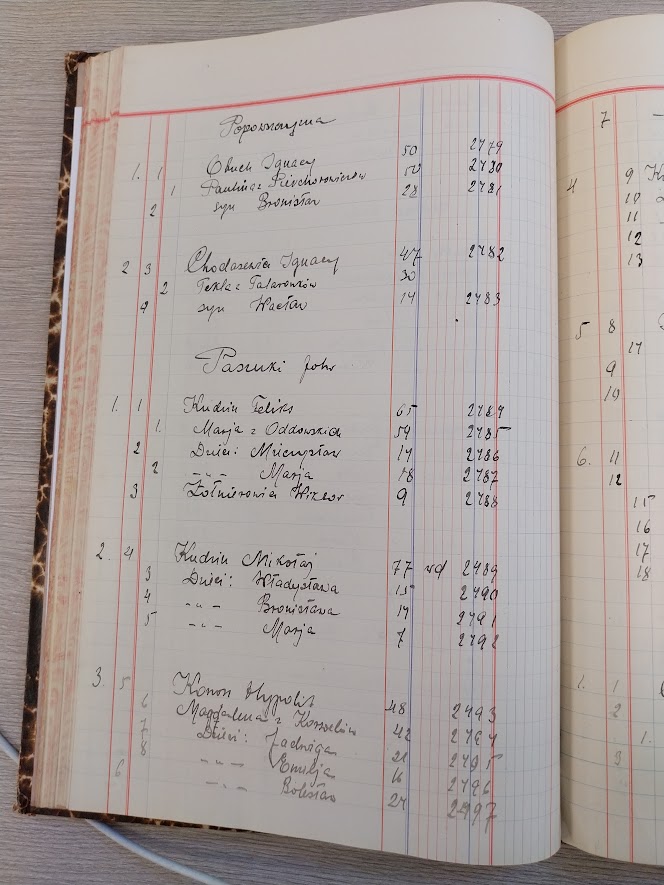 Popowszczyzna
1. 1 Obuch Ignacy 50 2779
1 Paulina z Piechorowiczów 50 2780
2 syn Bronisław 28 2781
2 3 Chodasewicz Ignacy 47 2782
2 Tekla z Tataronków 30
4 syn Wacław 14 2783
Paszuki folw
1. 1 Kudzin Feliks 65 2784
1. Marja z Oddowskich 54 2785
2 Dzieci: Mieczysław 14 2786
2 -"- Marja 18 2787
3 Żołnierowicz Wiktor 9 2788
2. 4 Kudzin Mikołaj 77 wd 2789
3 Dzieci: Władysława 15 2790
4 -"- Bronisława 14 2791
5 -"- Marja 7 2792
3. 5 Konon Hypolit 48 2793
6 Magdalena z 42 2794
7 Dzieci: Jadwiga 21 2795
8 -"- Emilja 16 2796
6 -"- Bolesław 24 2797
7
4 9
10
11
12
13
5 8
14
9
10
6. 11
12
15
16
17
18
1. 1
2
1.
3